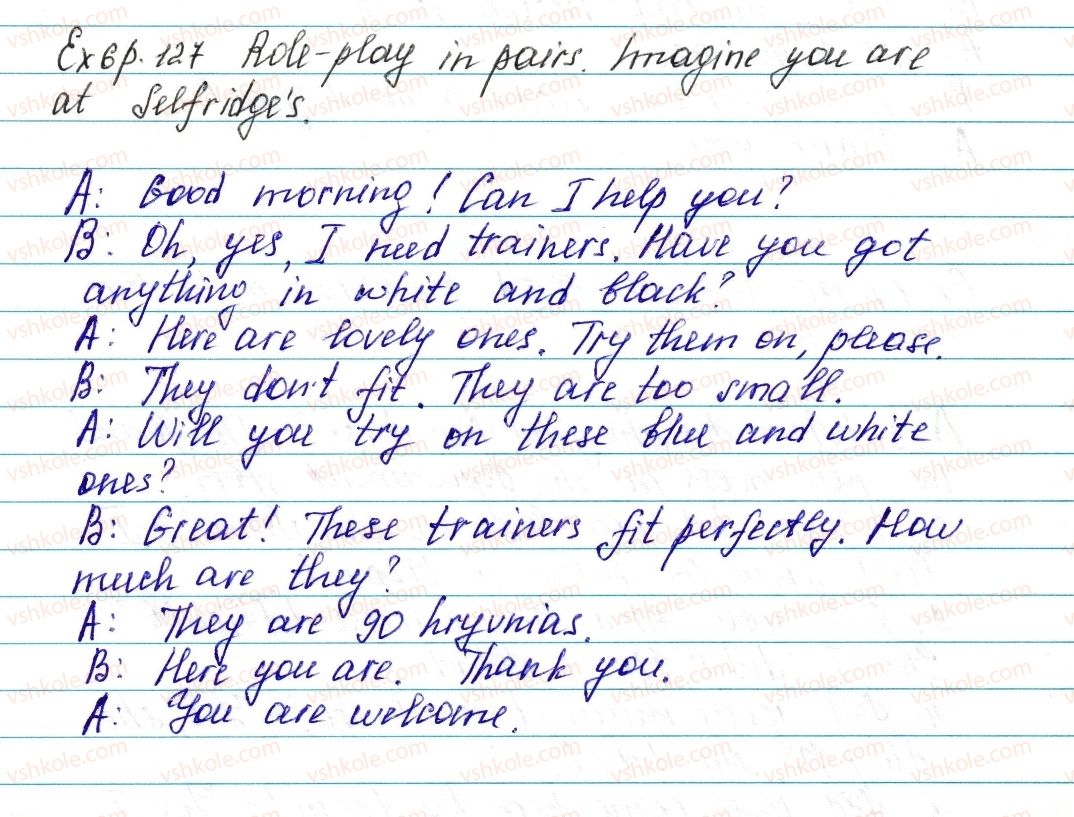 Ex 6 p. 127 Role-play in pairs. Imagine you are
at Selfridge's.
A: Good morning! Can I help you?
B: Oh, yes, I need trainers. Have you got
anything in white and black?
A: Here are lovely ones. Try them on, please.
B: They don't fit. They are too small.
A: Will you try on these blue and white
ones?
B: Great! These trainers fit perfectly. How
much are they?
A: They are 90 hryvnias.
B: Here you are. Thank you.
A: You are welcome.